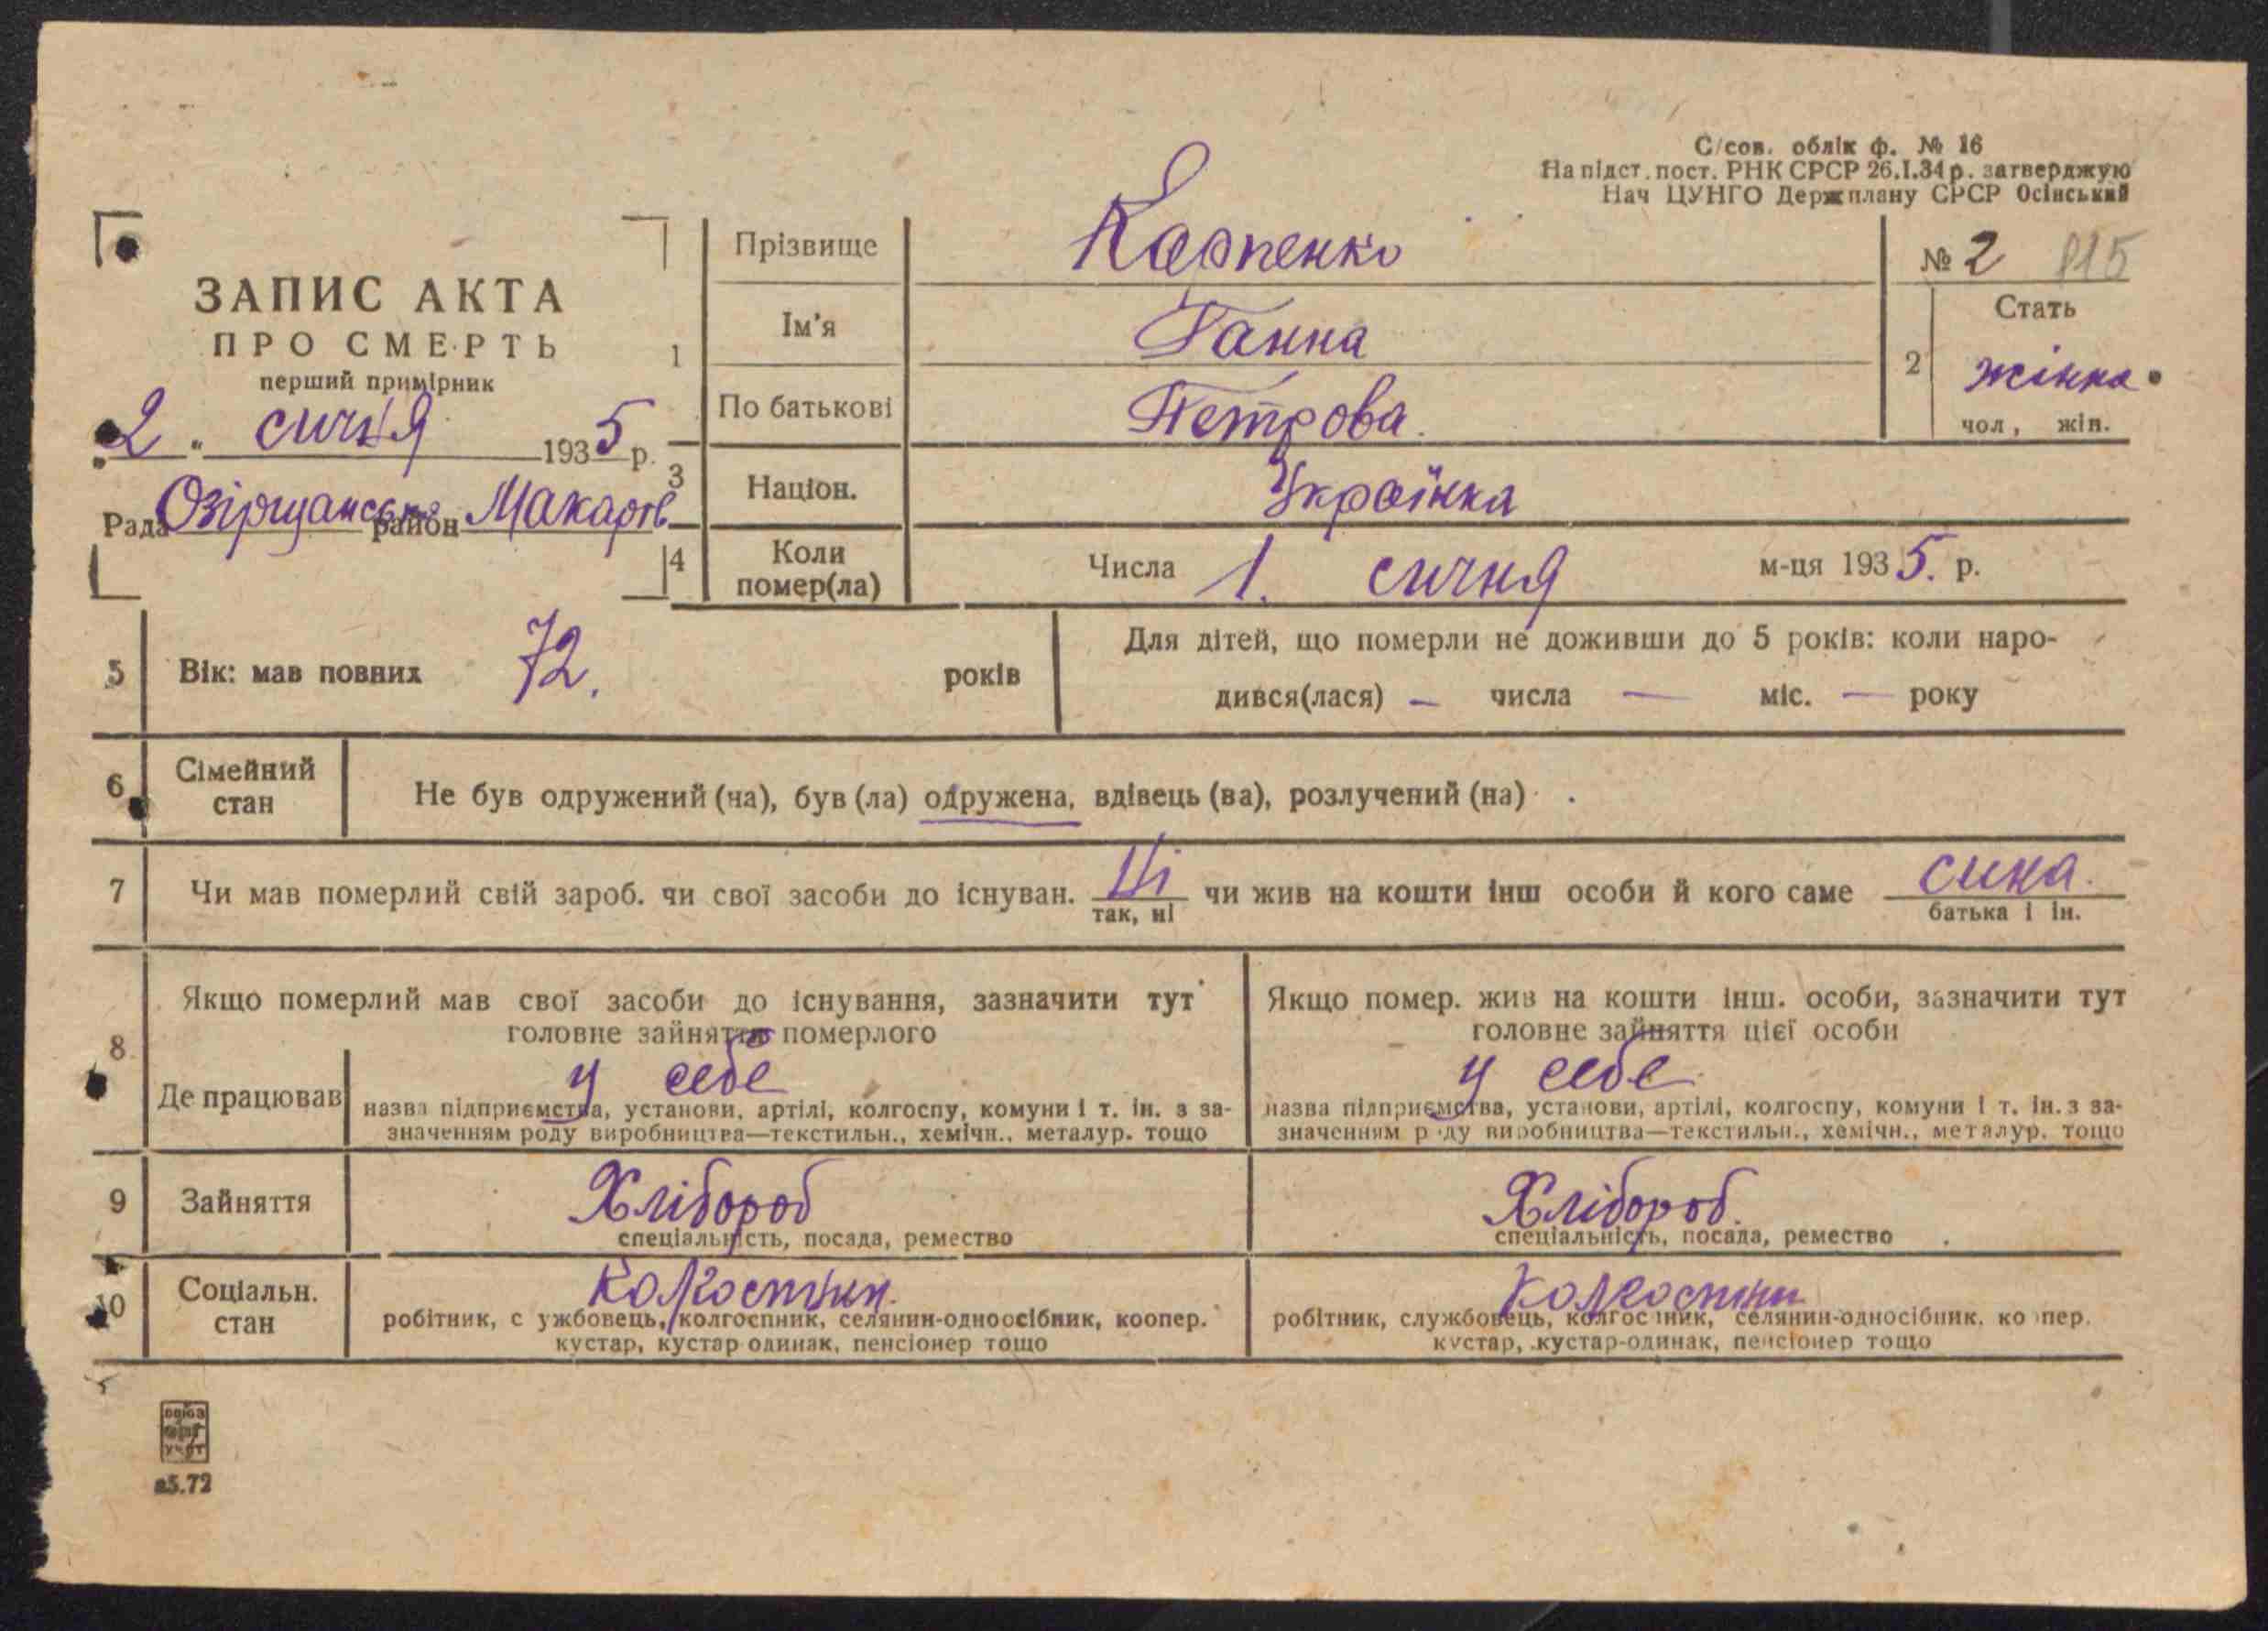 С/сов. облік ф. № 16
На підст. пост. РНК СРСР 26.I.34 р. затверджую
Нач ЦУНГО Держплану СРСР Осінський
ЗАПИС АКТА
ПРО СМЕРТЬ
перший примірник
2 " сичня 1935 р.
Рада Озірщанська район Макарів
1
Прізвище Карпенко
Ім'я Ганна
По батькові Петрова.
№ 2 815
2 Стать
жінка
чол, жін.
3 Націон. Українка
4 Коли помер(ла) Числа 1. сичня м-ця 1935. р.
5 Вік: мав повних 72. років
Для дітей, що померли не доживши до 5 років: коли наро-
дився(лася) — числа — міс. — року
6 Сімейний стан Не був одружений (на), був (ла) одружена, вдівець (ва), розлучений (на)
7 Чи мав померлий свій зароб. чи свої засоби до існуван. Ні чи жив на кошти інш особи й кого саме сина.
так, ні батька і ін.
8
Якщо померлий мав свої засоби до існування, зазначити тут
головне зайняття померлого
Де працював у себе
назва підприємства, установи, артілі, колгоспу, комуни і т. ін. з за-
значенням роду виробництва—текстильн., хемічн., металур. тощо
Якщо помер. жив на кошти інш. особи, зазначити тут
головне зайняття цієї особи
у себе
назва підприємства, установи, артілі, колгоспу, комуни і т. ін. з за-
значенням р ду виробництва—текстильн., хемічн., металур. тощо
9 Зайняття Хлібороб Хлібороб.
спеціальність, посада, ремество спеціальність, посада, ремество
10 Соціальн. стан
Колгоспник.
робітник, с ужбовець, колгоспник, селянин-одноосібник, коопер.
кустар, кустар одинак, пенсіонер тощо
Колгоспник
робітник, службовець, колгос ник, селянин-односібник. ко пер.
кустар, кустар-одинак, пенсіонер тощо
СОЮЗ
УЧЕТ
в5.72